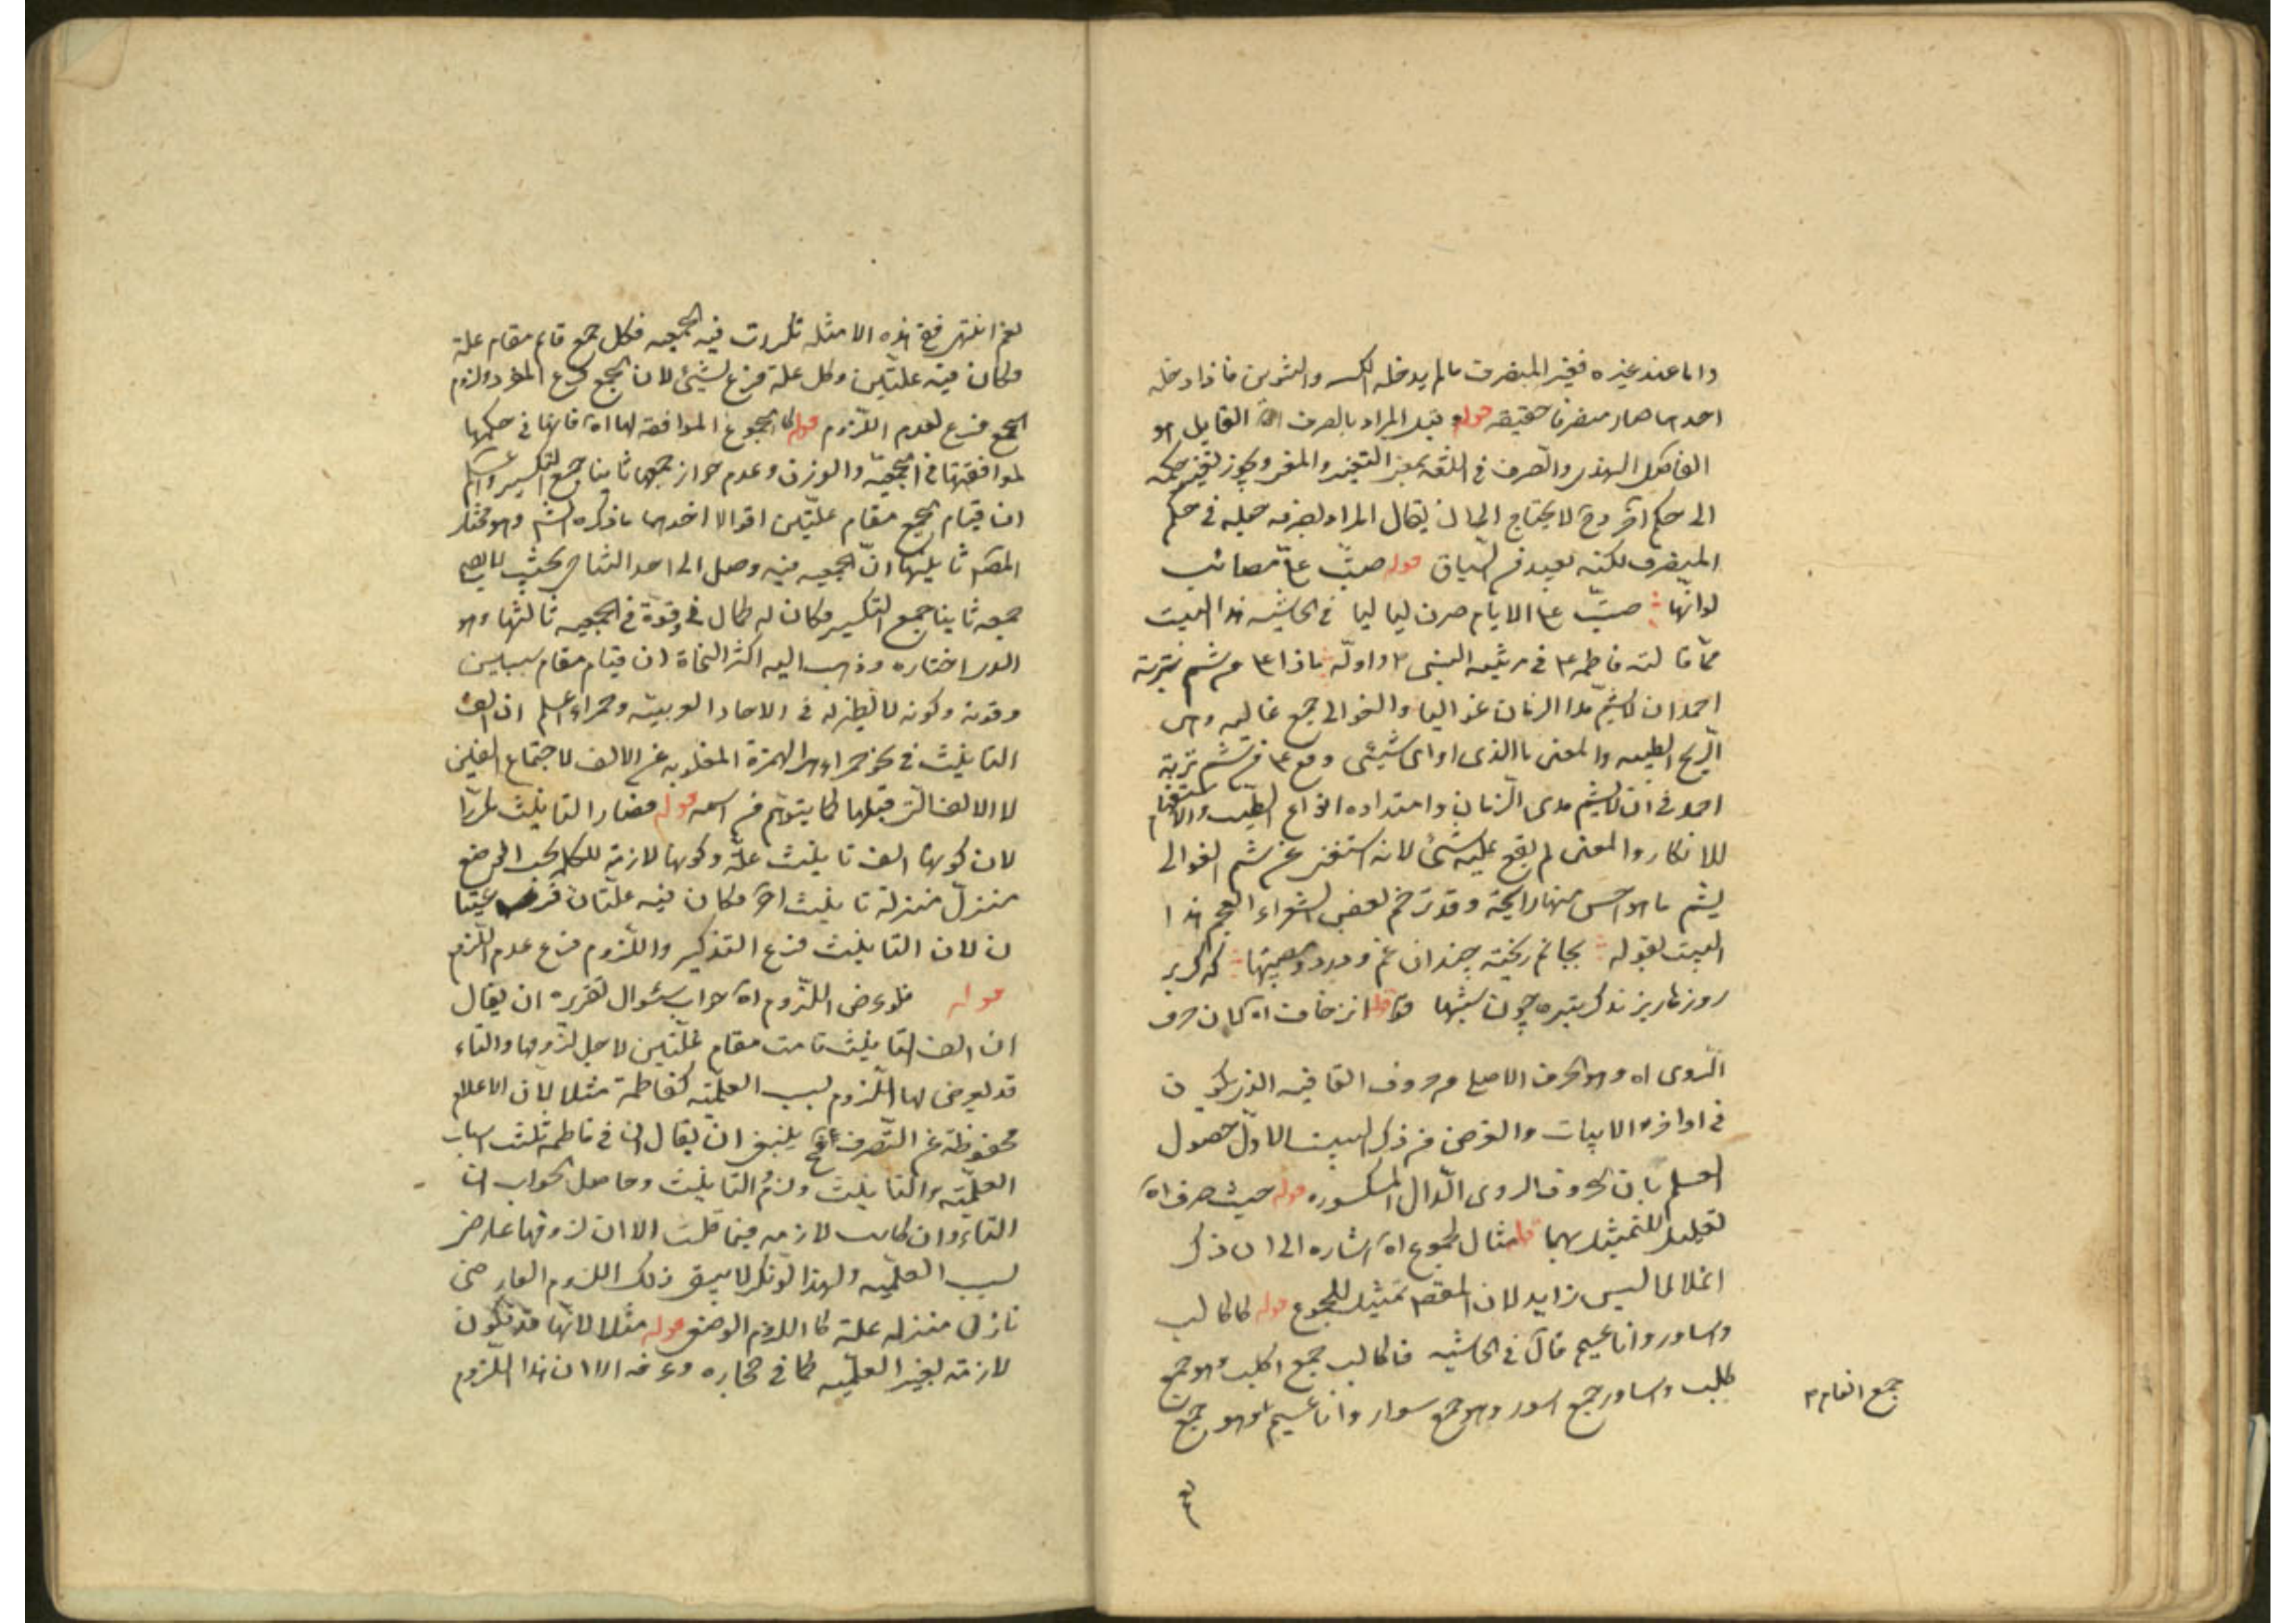 واما عند غيره فغير المنصرف ما لم يدخله الكسر والتنوين فاذا دخله
احدهما صار منصرفا حقيقة قوله وقيل المراد بالصرف اه القايل هو
الفاضل الهندى والصرف فى اللغة بمعنى التغير والمعنى ويجوز تغير حكمه
الى حكم آخر وح لا يحتاج الى ان يقال المراد بصرفه جعله فى حكم
المنصرف لكنه بعيد من السياق قوله صبت على مصائب
لو انها صبت على الايام صرن لياليا فى الحاشيه هذا البيت
مما قالته فاطمه ع فى مرثيه النبى ص واوله ماذا على من شم تربة
احمد ان لا يشم مدا الزمان غواليا والغوالى جمع غاليه وهى
الريح الطيبه والمعنى ما الذى او اى شيئى وقع على من شم تربة
احمد فى ان لا يشم مدى الزمان وامتداده انواع الطيب والاستفهام
للانكار والمعنى لم يقع عليه شئ لانه استغنى عن شم الغوالى
يشم ما هو احسن منها رايحة وقد ترجم بعض الشعراء العجم هذا
البيت بقوله بجانم ريخته چندان غم و درد و مصيبتها كه گر بر
روزها ريزند گردد تيره چون شبها قوله انزخافت اه كان حرف
الروى اه وهو الحرف الاصلى من حروف القافيه الذى يكون
فى اواخر الابيات والغرض من ذكر البيت الاول حصول
العلم بان حروف الروى الدال المكسوره قوله حيث صرف اه
تعليل للتمثيل بهما قوله مثال لمجموع اه اشاره الى ان ذكر
اغلالا ليس زايد لان المقصود تمثيل للمجموع قوله كاكالب
واساور واناعيم قال فى الحاشيه فاكالب جمع اكلب وهو جمع
كلب واساور جمع اسور وهو جمع سوار واناعيم وهو جمع
جمع انعام
نعم انتهى فح هذه الامثله تكررت فيه الجمعيه فكل جمع قام مقام علة
فكان فيه علتين وكل علة فرع لشيئ لان الجمع فرع المفرد ولزوم
الجمع فرع لعدم اللزوم قوله كالجموع الموافقه لها اه فانها فى حكمها
لموافقتها فى الجمعيه والوزن وعدم جواز جمعها ثانيا جمع التكسير واعلم
ان فى قيام الجمع مقام علتين اقوالا احدها ما ذكره الش وهو مختار
المص ثانيها ان الجمعيه فيه وصل الى احد التناهى بحيث لا يصح
جمعه ثانيا جمع التكسير فكان له كمال فى وقوة فى الجمعيه ثالثها وهو
الذى اختاره وذهب اليه اكثر النحاة ان قيام مقام سببين
وقوته وكونه لا نظير له فى الاحاد العربيه وحمراء اعلم ان الف
التانيث فى نحو حمراء هى الهمزة المقلوبه عن الالف لاجتماع الفين
لا الالف التى قبلها كما يتوهم من اسمه قوله فصار التانيث مكررا
لان كونها الف تانيث علة وكونها لازمة للكلمه بحسب الوضع
منزل منزلة تانيث آخر فكان فيه علتان فرعيتا
ن لان التانيث فرع التذكير واللزوم فرع عدم اللزوم
قوله فلو عرض اللزوم اه جواب سئوال تقريره ان يقال
ان الف التانيث قامت مقام علتين لاجل لزومها والتاء
قد يعرض لها اللزوم بسبب العلميه كفاطمة مثلا لان الاعلام
محفوظة عن التصرف فح ينبغى ان يقال ان فى فاطمه ثلث اسباب
العلميه والتانيث ولزوم التانيث وحاصل الجواب ان
التاء وان كانت لازمه فيما قلت الا ان لزومها عارض
بسبب العلميه ولهذا لو نكر لا يبقى ذلك اللزوم العارضى
نازل منزله علة كاللازم الوضعى قوله مثلا لانها قد تكون
لازمه بغير العلميه كما فى حجاره وغرفه الا ان هذا اللزوم